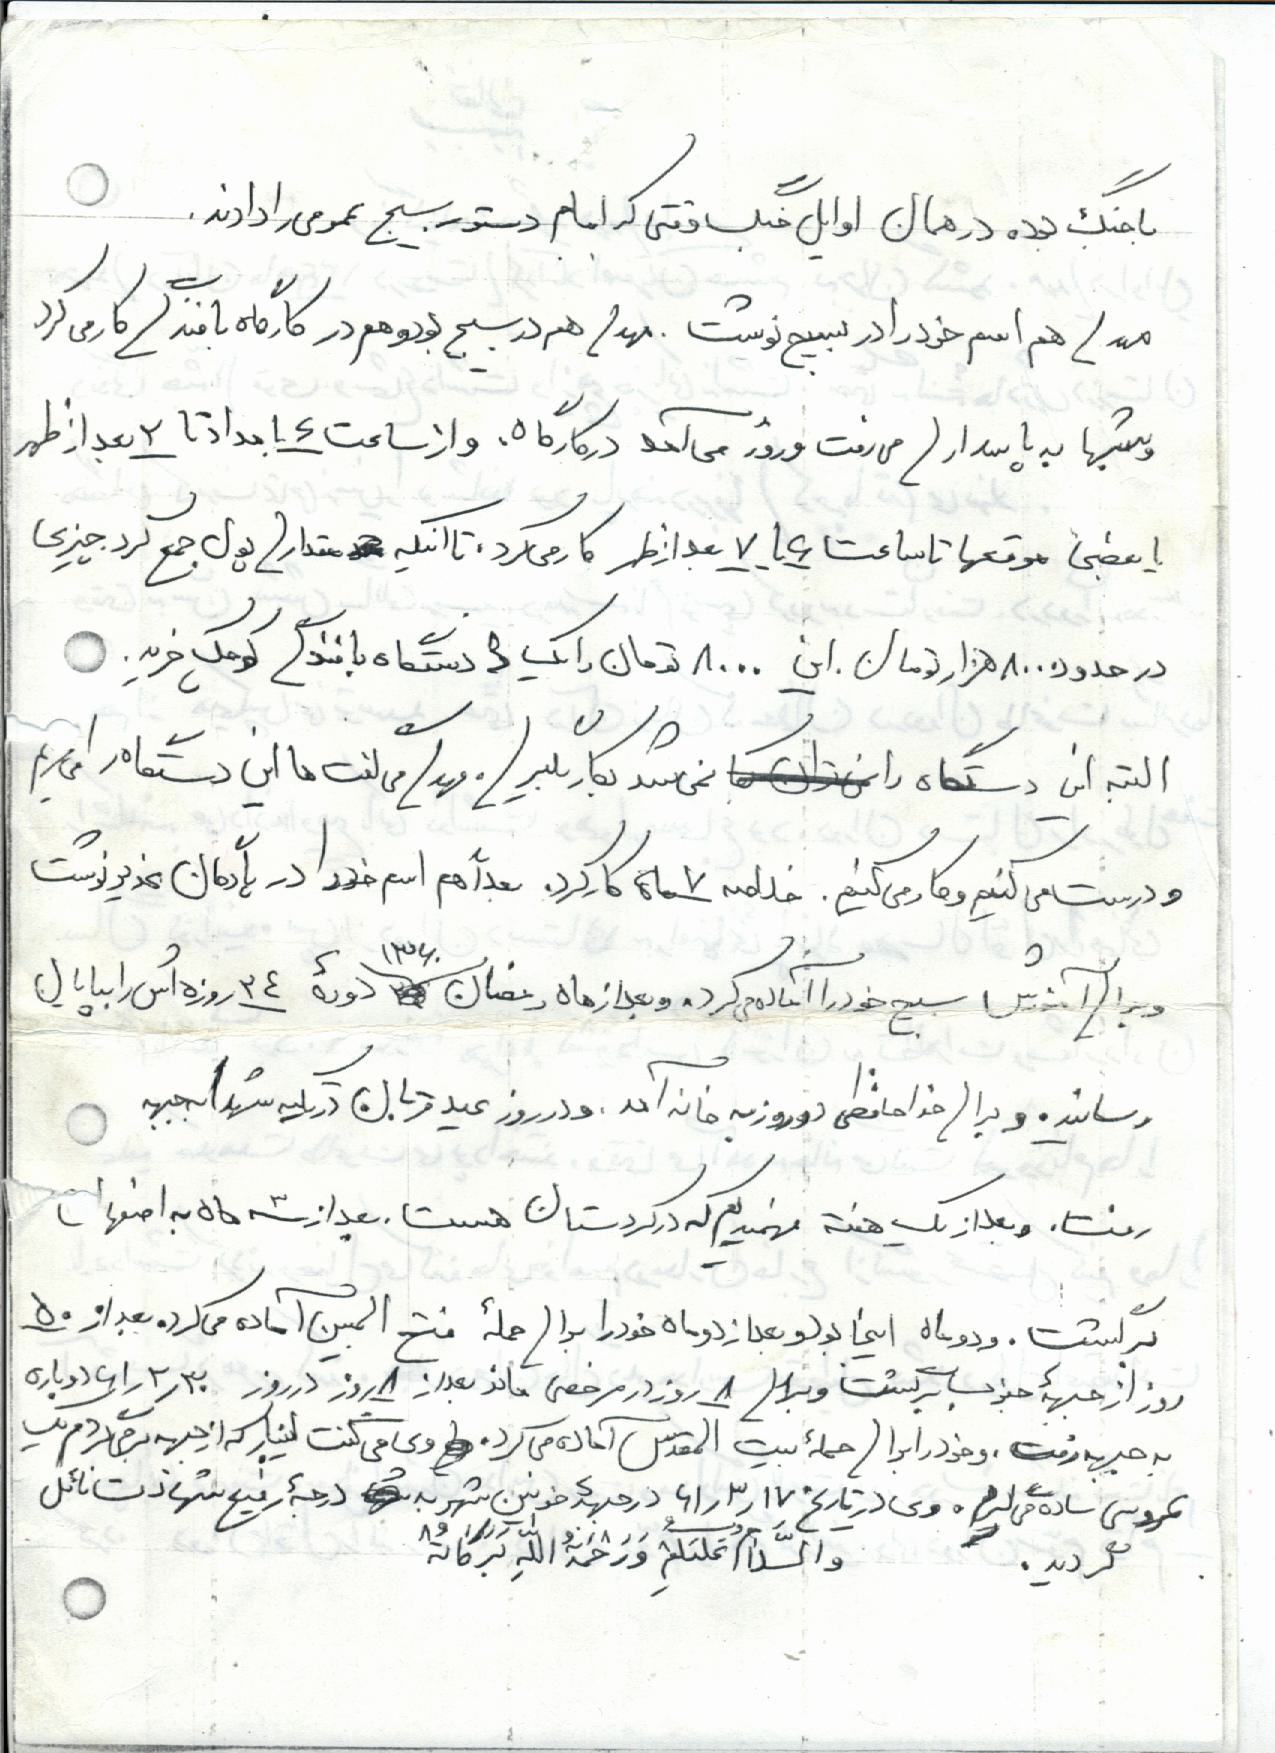 با جنگ بوده در همان اوایل جنگ وقتی که امام دستور بسیج عمومی را دادند.
مهدی هم اسم خود را در بسیج نوشت. مهدی هم در بسیج بود و هم در کارگاه بافندگی کار می کرد
وشبها به پاسداری می رفت و روز می آمد در کارگاه. و از ساعت ٦ بامداد تا ۲ بعد از ظهر
یا بعضی موقعها تا ساعت ٦ یا ۷ بعد از ظهر کار می کرد. تا اینکه مقداری پول جمع کرد. چیزی
در حدود ۸۰۰۰ هزار تومان. این ۸۰۰۰ تومان را یک دستگاه بافندگی کوچک خرید.
البته این دستگاه را نمی شد بکار بگیری. مهدی می گفت ما این دستگاه را می بریم
و درست می کنیم و کار می کنیم. خلاصه ۷ ماه کار کرد. بعداً هم اسم خود را در پادگان غدیر نوشت
وبرای آموزش بسیج خود را آماده می کرد. و بعد از ماه رمضان ۱۳٦۰ دورهٔ ۲٤ روزه اش را بپایان
رسانید. و برای خداحافظی دو روز به خانه آمد. و در روز عید قربان از تکیه شهدا به جبهه
رفت. و بعد از یک هفته فهمیدیم که در کردستان هست. بعد از سه ۳ ماه به اصفهان
برگشت. و دو ماه اینجا بود و بعد از دو ماه خود را برای حملهٔ فتح المبین آماده می کرد. بعد از ۵۰
روز از جبههٔ جنوب برگشت و برای ۸ روز در مرخصی ماند بعد از ۸ روز در روز ۲٫۳۰ر٦۱ دوباره
به جبهه رفت. و خود را برای حملهٔ بیت المقدس آماده می کرد. وی می گفت اینبار که از جبهه برمی گردم یک
عروسی ساده می گیرم. وی در تاریخ ۱۷ر۳ر٦۱ در جبههٔ خونین شهر به درجهٔ رفیع شهادت نائل
گردید. والسَّلامُ عَلَیکُم وَرَحْمَةُ اللّهِ وَبَرَکاتُهُ